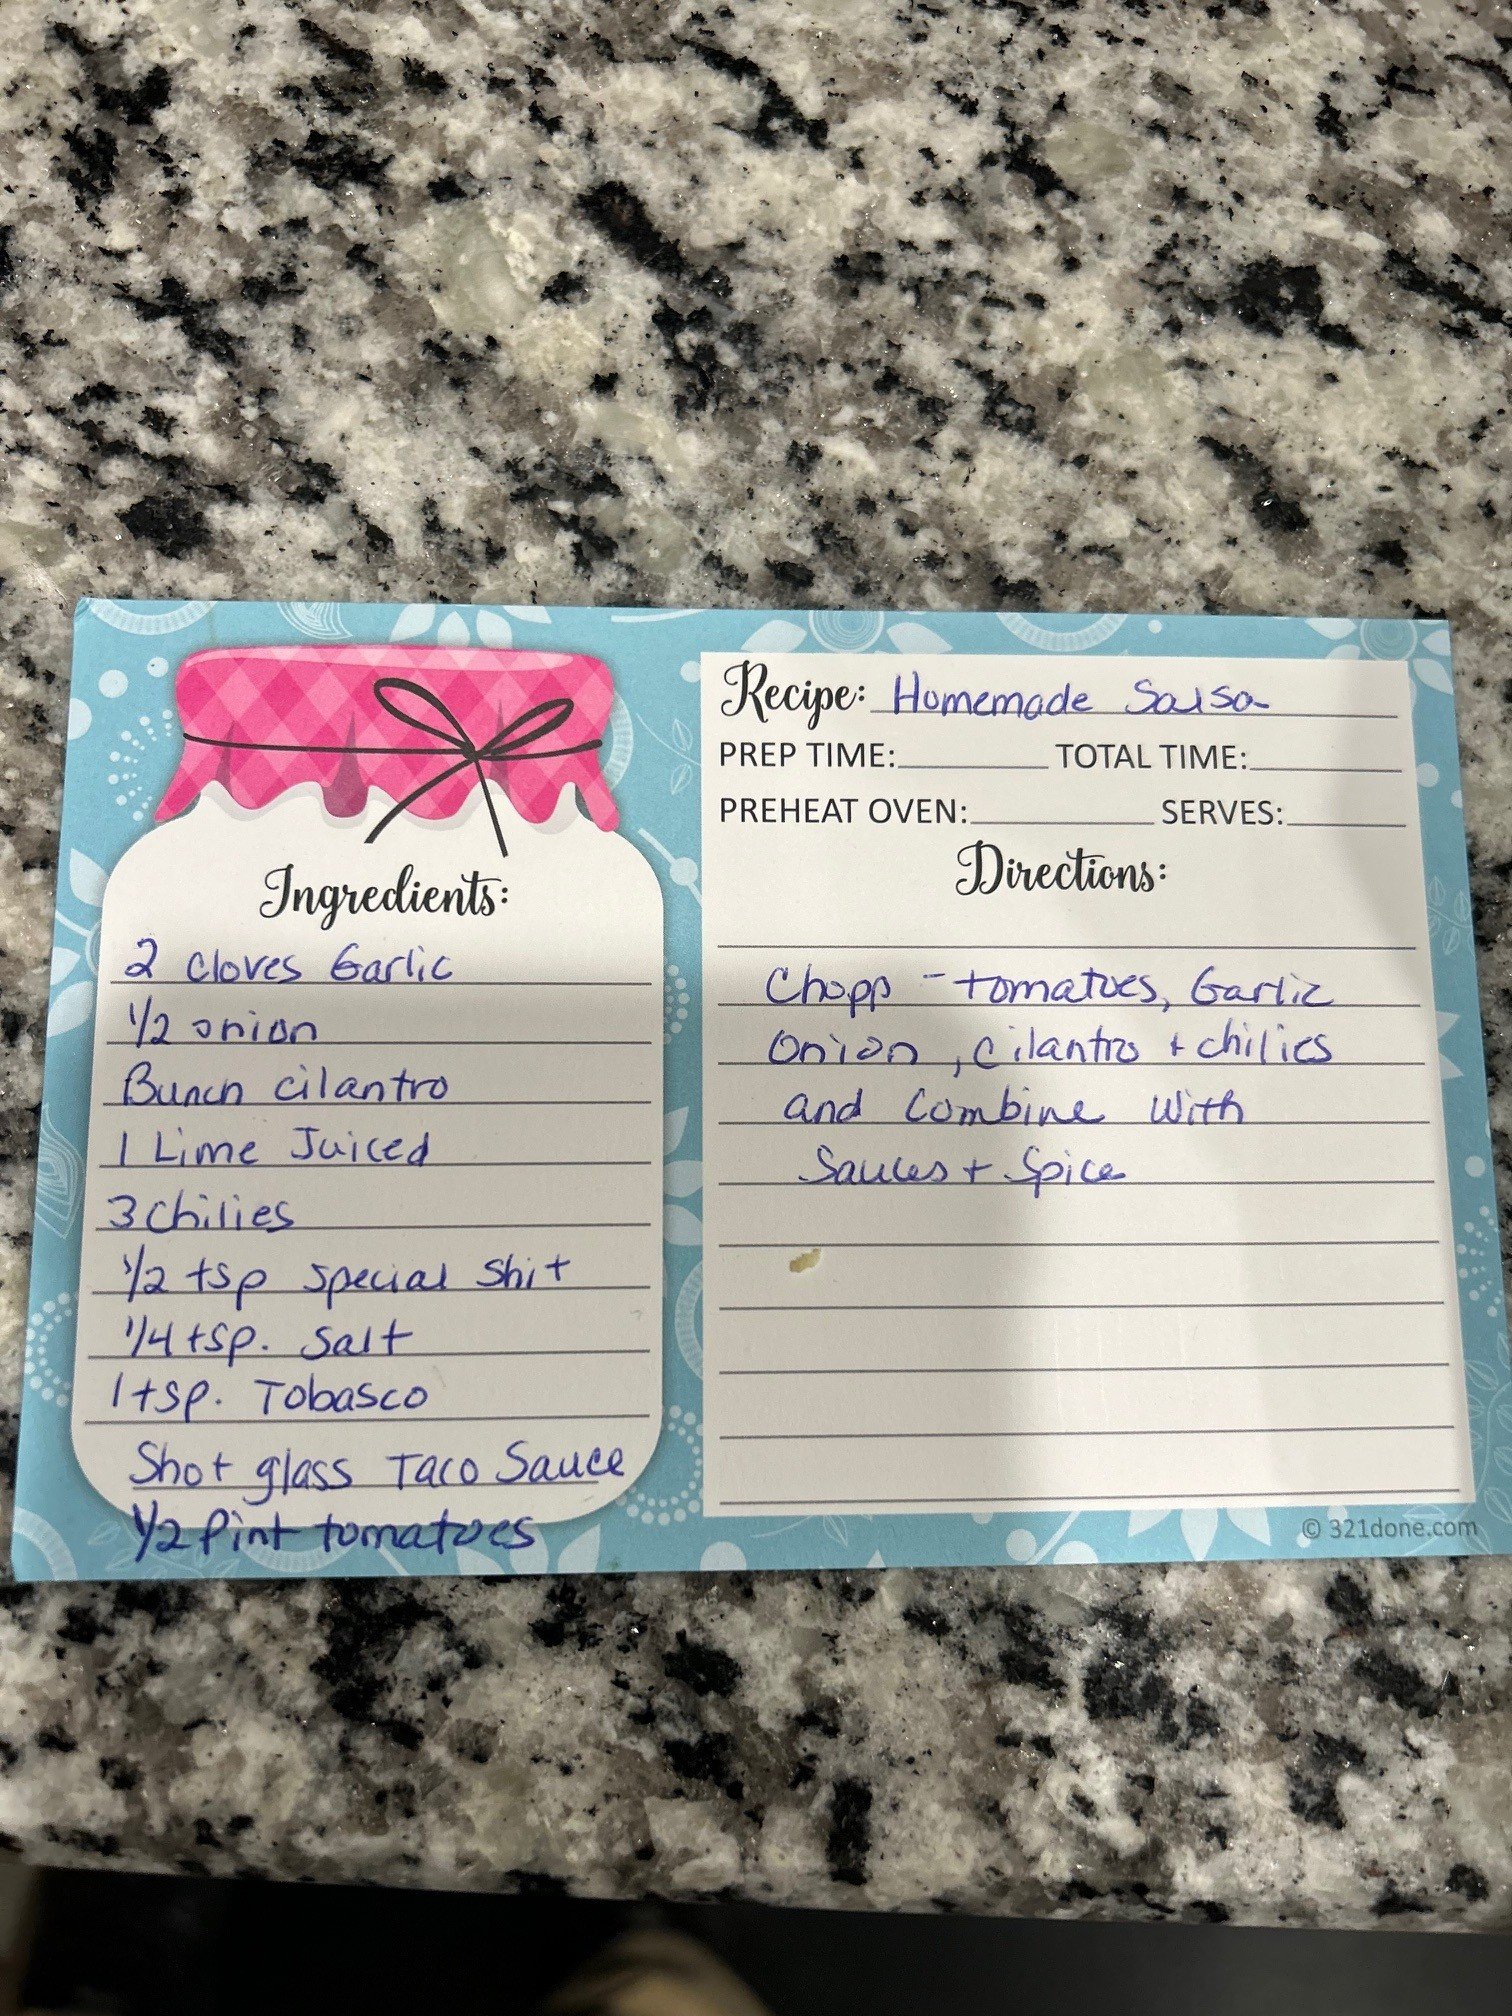 Ingredients:
2 cloves Garlic
1/2 onion
Bunch cilantro
1 Lime Juiced
3 chilies
1/2 tsp special shit
1/4 tsp. salt
1 tsp. Tobasco
Shot glass Taco Sauce
1/2 Pint tomatoes
Recipe: Homemade Salsa
PREP TIME: TOTAL TIME:
PREHEAT OVEN: SERVES:
Directions:
Chopp - tomatoes, Garlic
Onion, cilantro + chilies
and Combine With
Sauces + Spice
© 321done.com